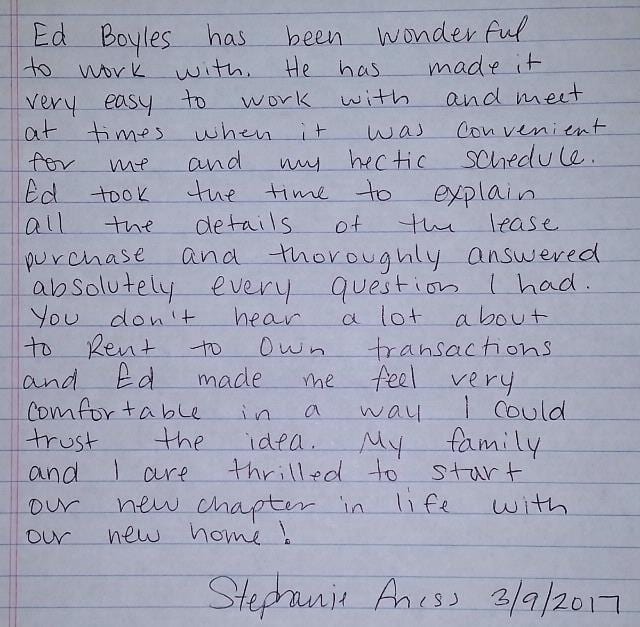 Ed Boyles has been wonderful
to work with. He has made it
very easy to work with and meet
at times when it was convenient
for me and my hectic schedule.
Ed took the time to explain
all the details of the lease
purchase and thoroughly answered
absolutely every question I had.
You don't hear a lot about
to Rent to Own transactions
and Ed made me feel very
comfortable in a way I could
trust the idea. My family
and I are thrilled to start
our new chapter in life with
our new home!
Stephanie 3/9/2017